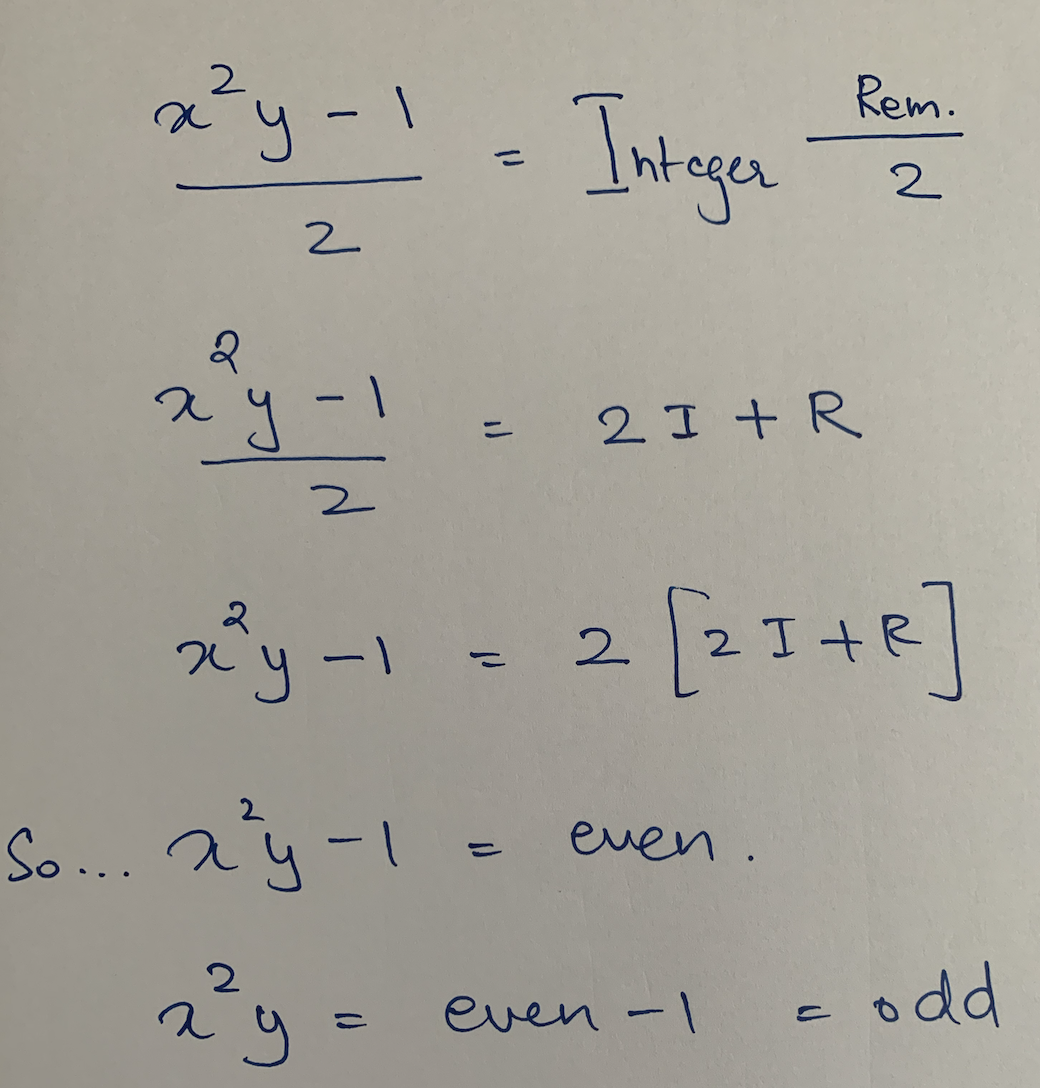 x²y - 1 / 2 = Integer Rem. / 2
x²y - 1 / 2 = 2I + R
x²y - 1 = 2 [2I + R]
So... x²y - 1 = even.
x²y = even - 1 = odd